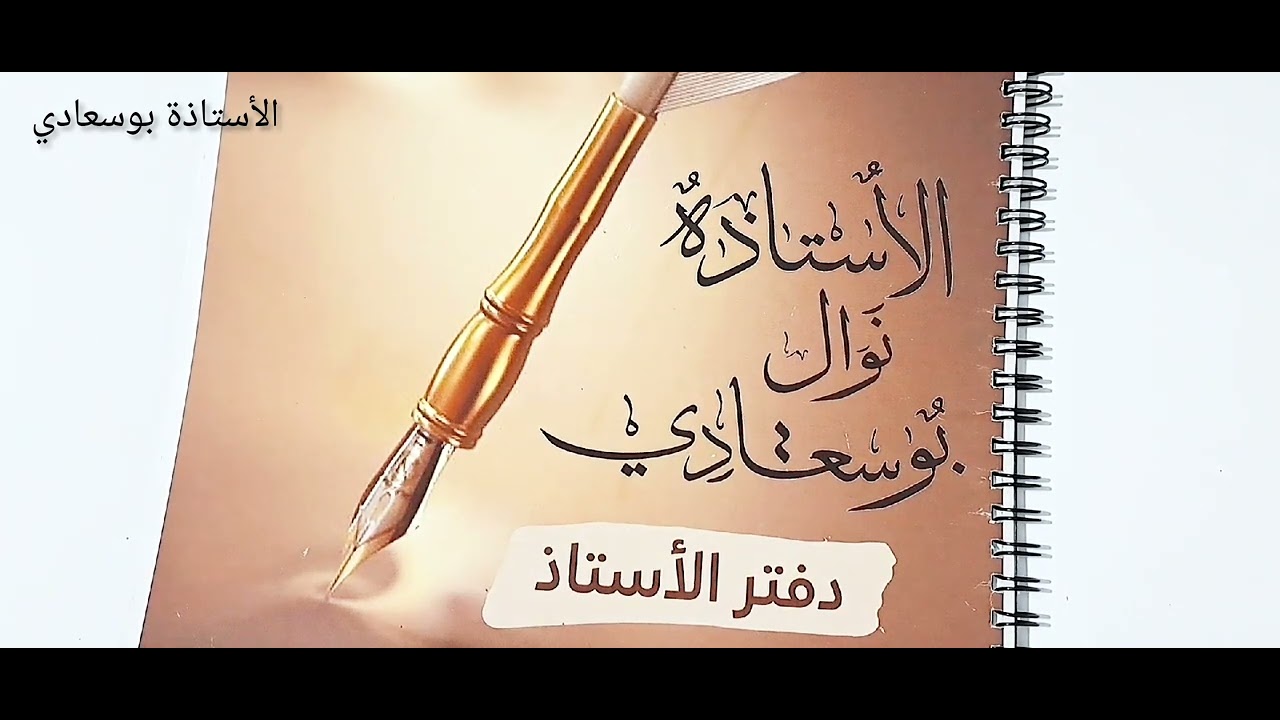 الأستاذة بوسعادي
الأُستاذةُ
نَوَال
بُوسعادِي
دفتر الأستاذ